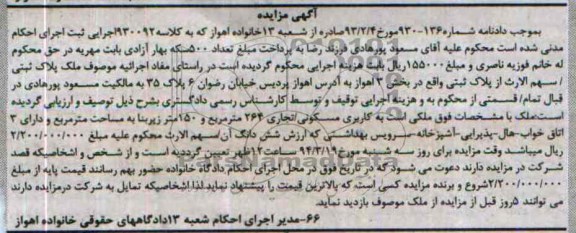 آگهی مزایده
بموجب دادنامه شماره ۱۳۶-۹۳۰مورخ۹۳/۲/۴صادره از شعبه ۱۳خانواده اهواز که به کلاسه۹۳۰۰۹۲اجرایی ثبت اجرای احکام
مدنی شده است محکوم علیه آقای مسعود پورهادی فرزند رضا به پرداخت مبلغ تعداد ۵۰۰سکه بهار آزادی بابت مهریه در حق محکوم
له خانم فوزیه ناصری و مبلغ ۱۵۵۰۰۰ریال بابت هزینه اجرایی محکوم گردیده است در راستای مفاد اجرائیه موصوف ملک پلاک ثبتی
/ سهم الارث از پلاک ثبتی واقع در بخش ۲ اهواز به آدرس اهواز پردیس خیابان رضوان ۶ پلاک ۳۵ به مالکیت مسعود پورهادی در
قبال تمام/ قسمتی از محکوم به و هزینه اجرایی توقیف و توسط کارشناس رسمی دادگستری بشرح ذیل توصیف و ارزیابی گردیده
است:ملک با مشخصات فوق ملکی است به کاربری مسکونی تجاری ۲۶۴ مترمربع و ۱۵۰متر زیربنا به مساحت مترمربع و دارای ۳
اتاق خواب-هال-پذیرایی-آشپزخانه-سرویس بهداشتی که ارزش شش دانگ آن/سهم الارث محکوم علیه مبلغ ۲/۲۰۰/۰۰۰/۰۰۰
ریال میباشد وقت مزایده برای روز سه شنبه مورخ۹۴/۳/۱۹ ساعت۱۲ظهر تعیین گردیده است و از شخص و اشخاصیکه قصد
شرکت در مزایده دارند دعوت می شود که در تاریخ فوق در محل اجرای احکام دادگاه خانواده حضور بهم رسانند قیمت پایه از مبلغ
۲/۲۰۰/۰۰۰/۰۰۰شروع و برنده مزایده کسی است که بالاترین قیمت را پیشنهاد نماید لذا اشخاصیکه تمایل به شرکت درمزایده دارند
می توانند ۵روز قبل از مزایده از ملک موصوف بازدید نماید.
۶۶-مدیر اجرای احکام شعبه ۱۳دادگاههای حقوقی خانواده اهواز